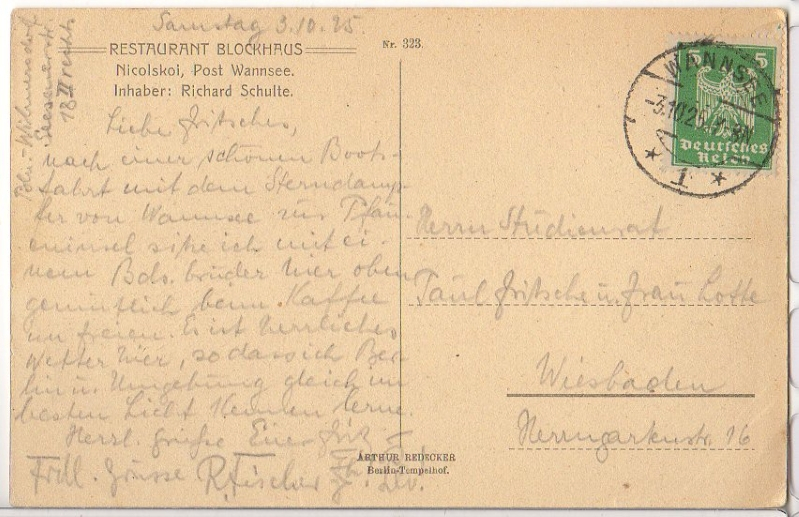 Samstag 3.10.25.
Bln.-Wilmersdorf
18 II rechts
RESTAURANT BLOCKHAUS
Nicolskoi, Post Wannsee.
Inhaber: Richard Schulte.
Nr. 323.
Liebe Fritsches,
nach einer schönen Boots-
fahrt mit dem Sterndamp-
fer von Wannsee zur Pfau-
eninsel sitze ich mit ei-
nem Bds.bruder hier oben
gemütlich beim Kaffee
im freien. Es ist herrliches
Wetter hier, so dass ich Ber-
lin u. Umgebung gleich im
besten Licht kennen lerne.
Herzl. Grüße Euer Fritz
Frdl. Grüsse R. Fischer
5 5
Deutsches
Reich
WANNSEE
-3.10.25.
* 1 *
Herrn Studienrat
Paul Fritsche u. Frau Lotte
Wiesbaden
16
ARTHUR REDECKER
Berlin-Tempelhof.